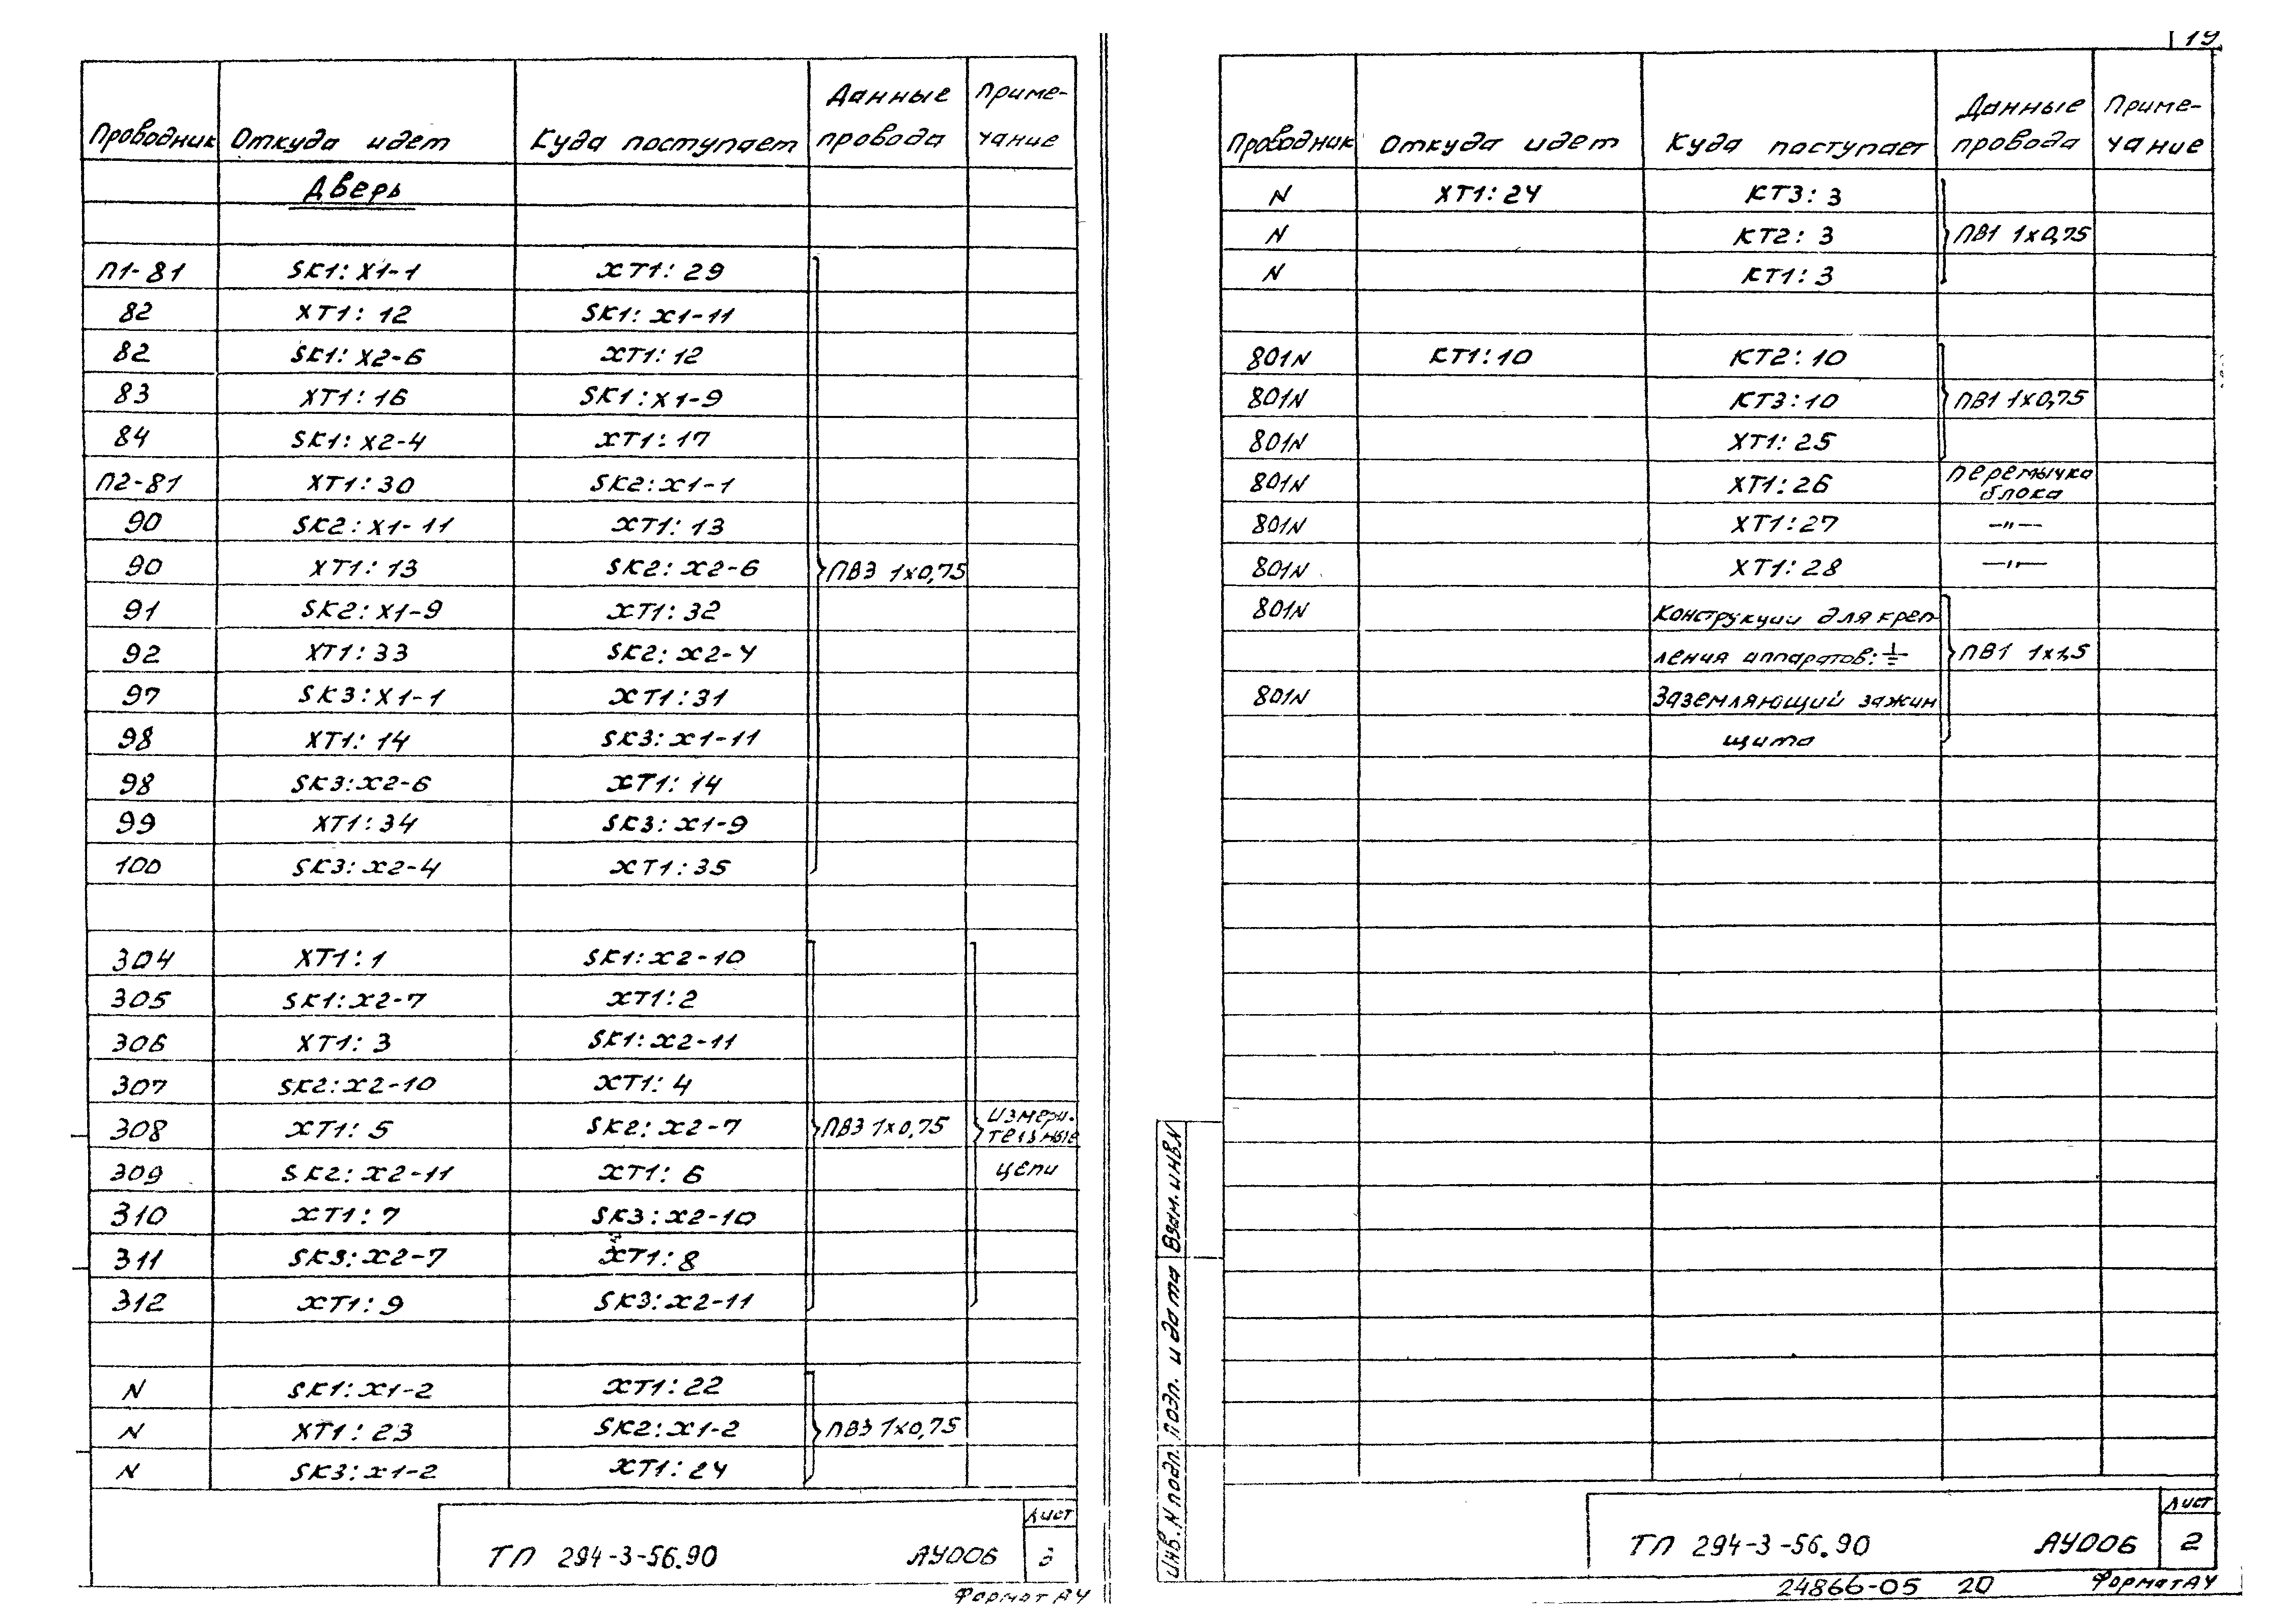 Проводник Откуда идет Куда поступает Данные провода Приме-чание
Дверь
П1-81 SK1: X1-1 XT1: 29
82 XT1: 12 SK1: X1-11
82 SK1: X2-6 XT1: 12
83 XT1: 16 SK1: X1-9
84 SK1: X2-4 XT1: 17
П2-81 XT1: 30 SK2: X1-1
90 SK2: X1-11 XT1: 13
90 XT1: 13 SK2: X2-6 ПВ3 1х0,75
91 SK2: X1-9 XT1: 32
92 XT1: 33 SK2: X2-4
97 SK3: X1-1 XT1: 31
98 XT1: 14 SK3: X1-11
98 SK3: X2-6 XT1: 14
99 XT1: 34 SK3: X1-9
100 SK3: X2-4 XT1: 35
304 XT1: 1 SK1: X2-10
305 SK1: X2-7 XT1: 2
306 XT1: 3 SK1: X2-11
307 SK2: X2-10 XT1: 4
308 XT1: 5 SK2: X2-7 ПВ3 1х0,75 измери-тельные
309 SK2: X2-11 XT1: 6 цепи
310 XT1: 7 SK3: X2-10
311 SK3: X2-7 XT1: 8
312 XT1: 9 SK3: X2-11
N SK1: X1-2 XT1: 22
N XT1: 23 SK2: X1-2 ПВ3 1х0,75
N SK3: X1-2 XT1: 24
ТП 294-3-56.90 АУ006
Лист
Формат А4
19
Проводник Откуда идет Куда поступает Данные провода Приме-чание
N XT1: 24 KT3: 3
N KT2: 3 ПВ1 1х0,75
N KT1: 3
801N KT1: 10 KT2: 10
801N KT3: 10 ПВ1 1х0,75
801N XT1: 25
801N XT1: 26 Перемычка блока
801N XT1: 27 —"—
801N XT1: 28 —"—
801N Конструкции для креп-
ления аппаратов: ⏚ ПВ1 1х1,5
801N Заземляющий зажим
щита
Инв. N подл. Подп. и дата Взам. инв. N
ТП 294-3-56.90 АУ006
Лист
2
24866-05 20 Формат А4